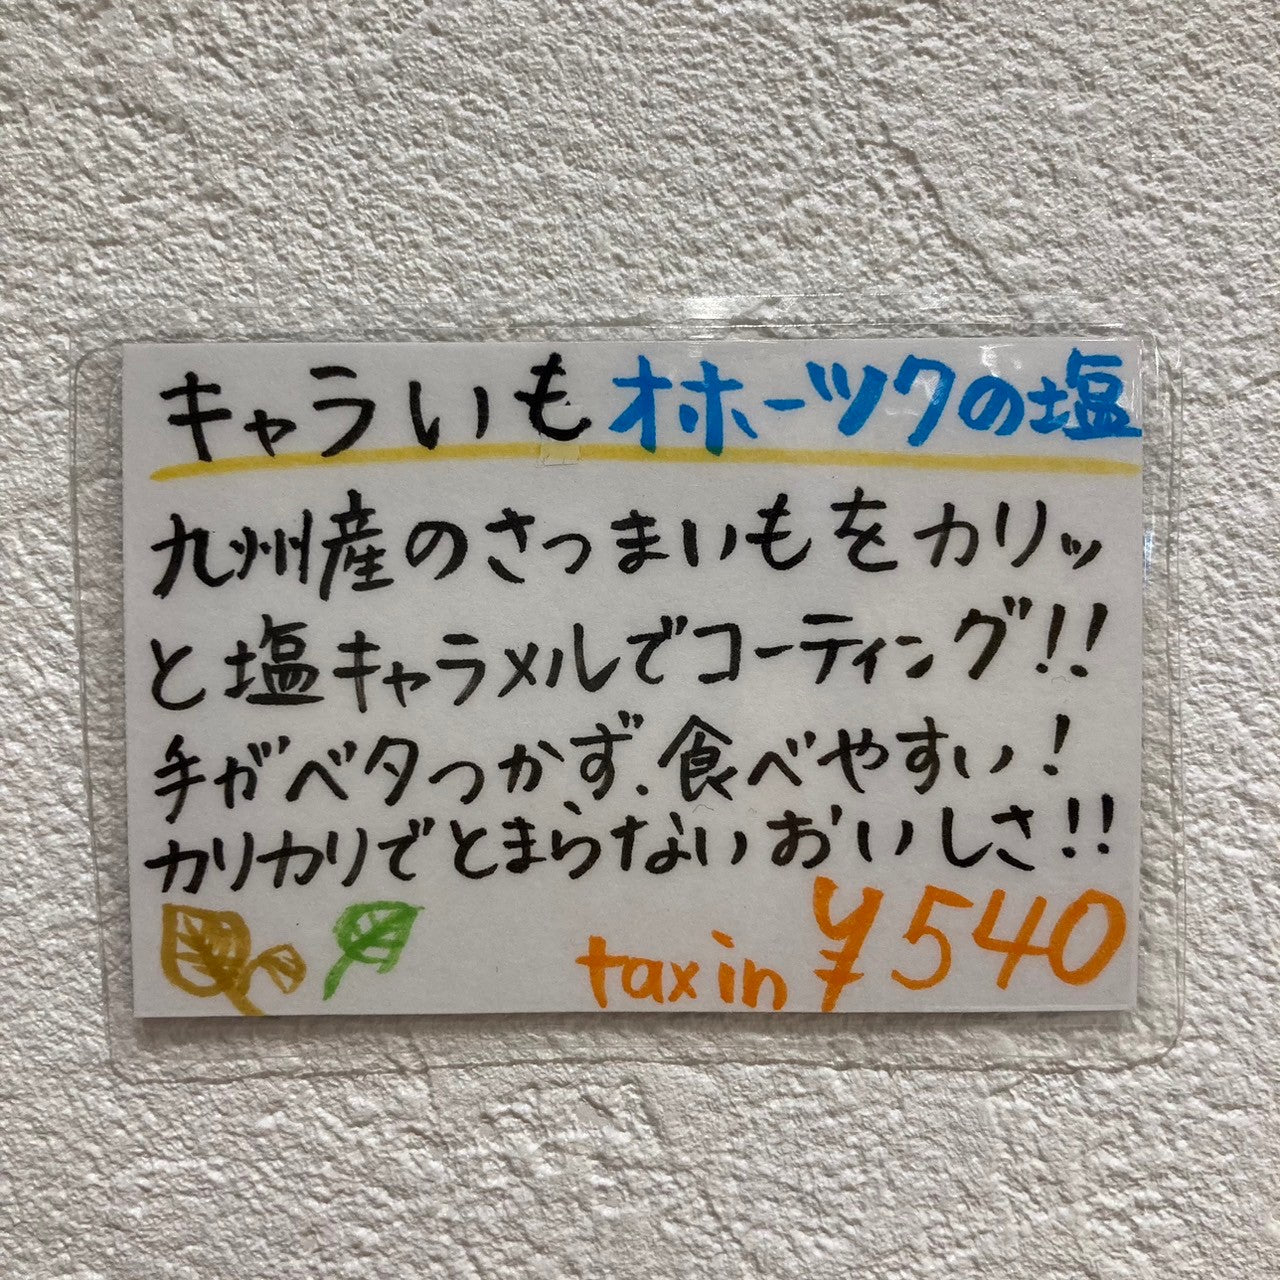 キャラいも オホーツクの塩
九州産のさつまいもをカリッ
と塩キャラメルでコーティング!!
手がベタつかず、食べやすい!
カリカリでとまらないおいしさ!!
tax in ¥540